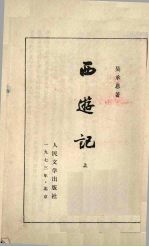 吴承恩著
西遊記
上
人民文学出版社
一九七三年·北京